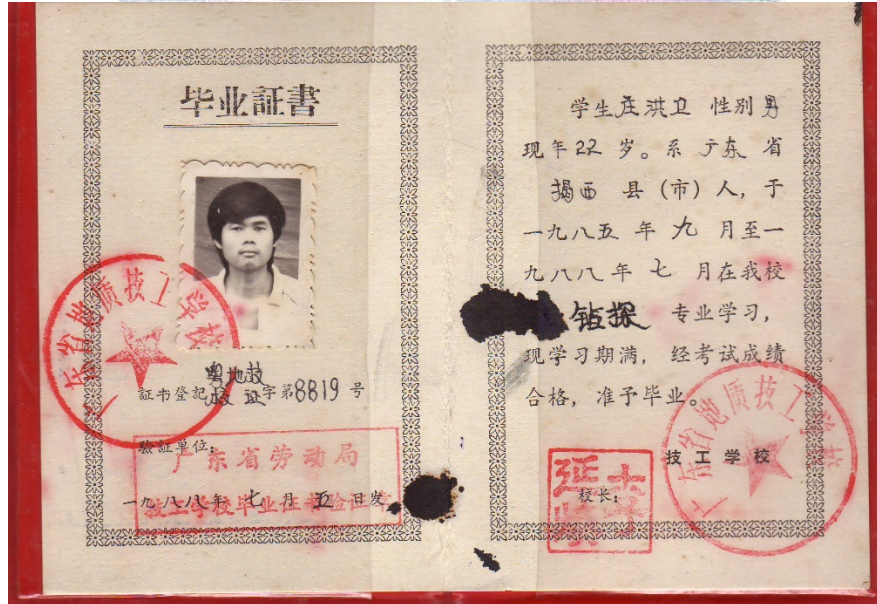 毕业証書
广东省地质技工学校
証书登记粤地技校証字第8819号
驗証单位:
广东省劳动局
技工学校毕业证书验证章
一九八八年七月五日发
学生庄洪卫 性别男
现年22岁。系广东省
揭西县(市)人,于
一九八五年九月至一
九八八年七月在我校
钻探 专业学习,
现学习期满,经考试成绩
合格,准予毕业。
广东省地质技工学校
技工学校
校长: